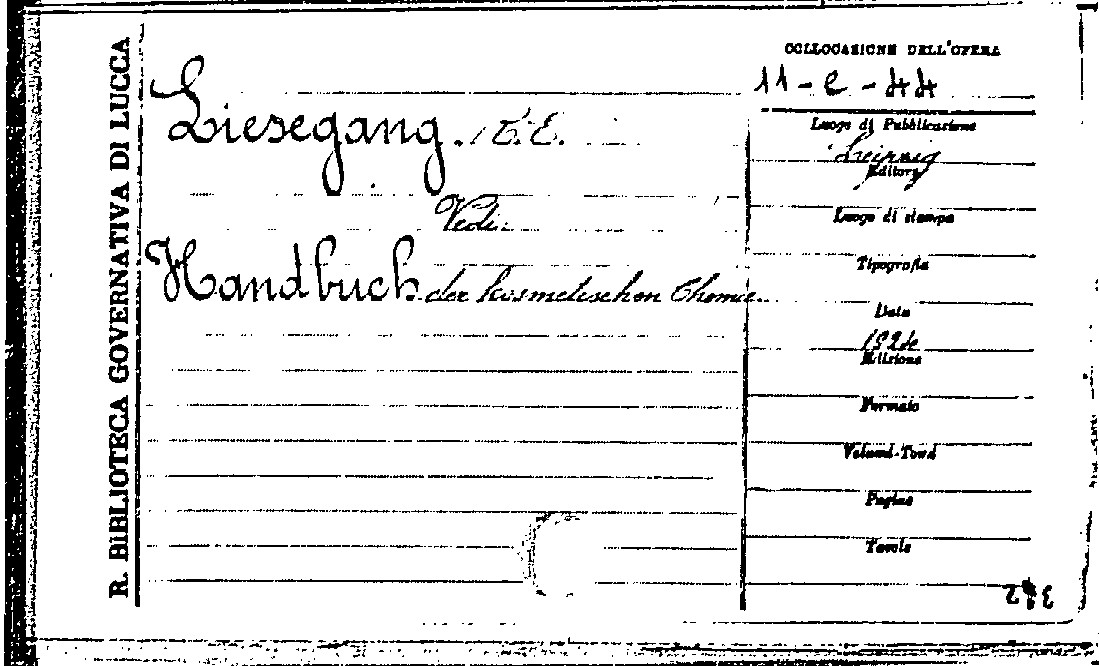 R. BIBLIOTECA GOVERNATIVA DI LUCCA
Liesegang. E.
Vedi
Handbuch der kosmetischen Chemie.
COLLOCAZIONE DELL'OPERA
11-e-44
Luogo di Pubblicazione
Leipzig
Editore
Luogo di stampa
Tipografia
Data
1924
Edizione
Formato
Volumi-Tomi
Pagine
Tavole